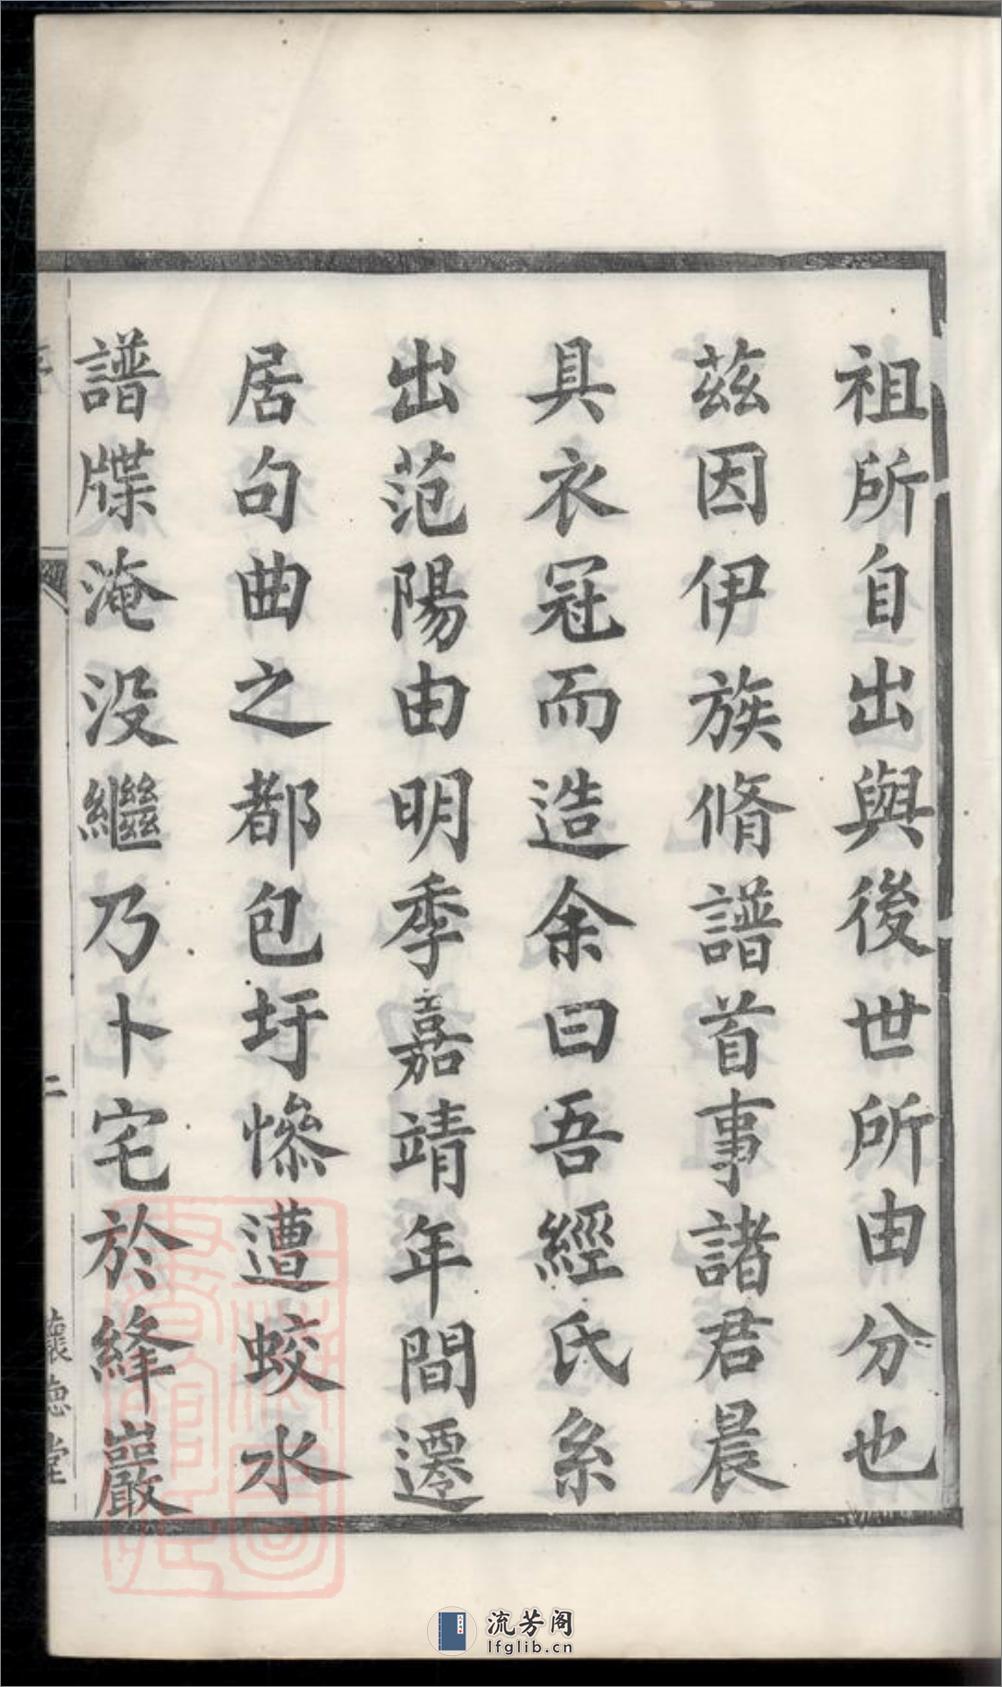 祖所自出與後世所由分也
茲因伊族脩譜首事諸君晨
具衣冠而造余曰吾經氏系
出范陽由明季嘉靖年間遷
居句曲之都包圩慘遭蛟水
譜牒淹没繼乃卜宅於絳巖
序
二
懷德堂
流芳阁
lfglib.cn